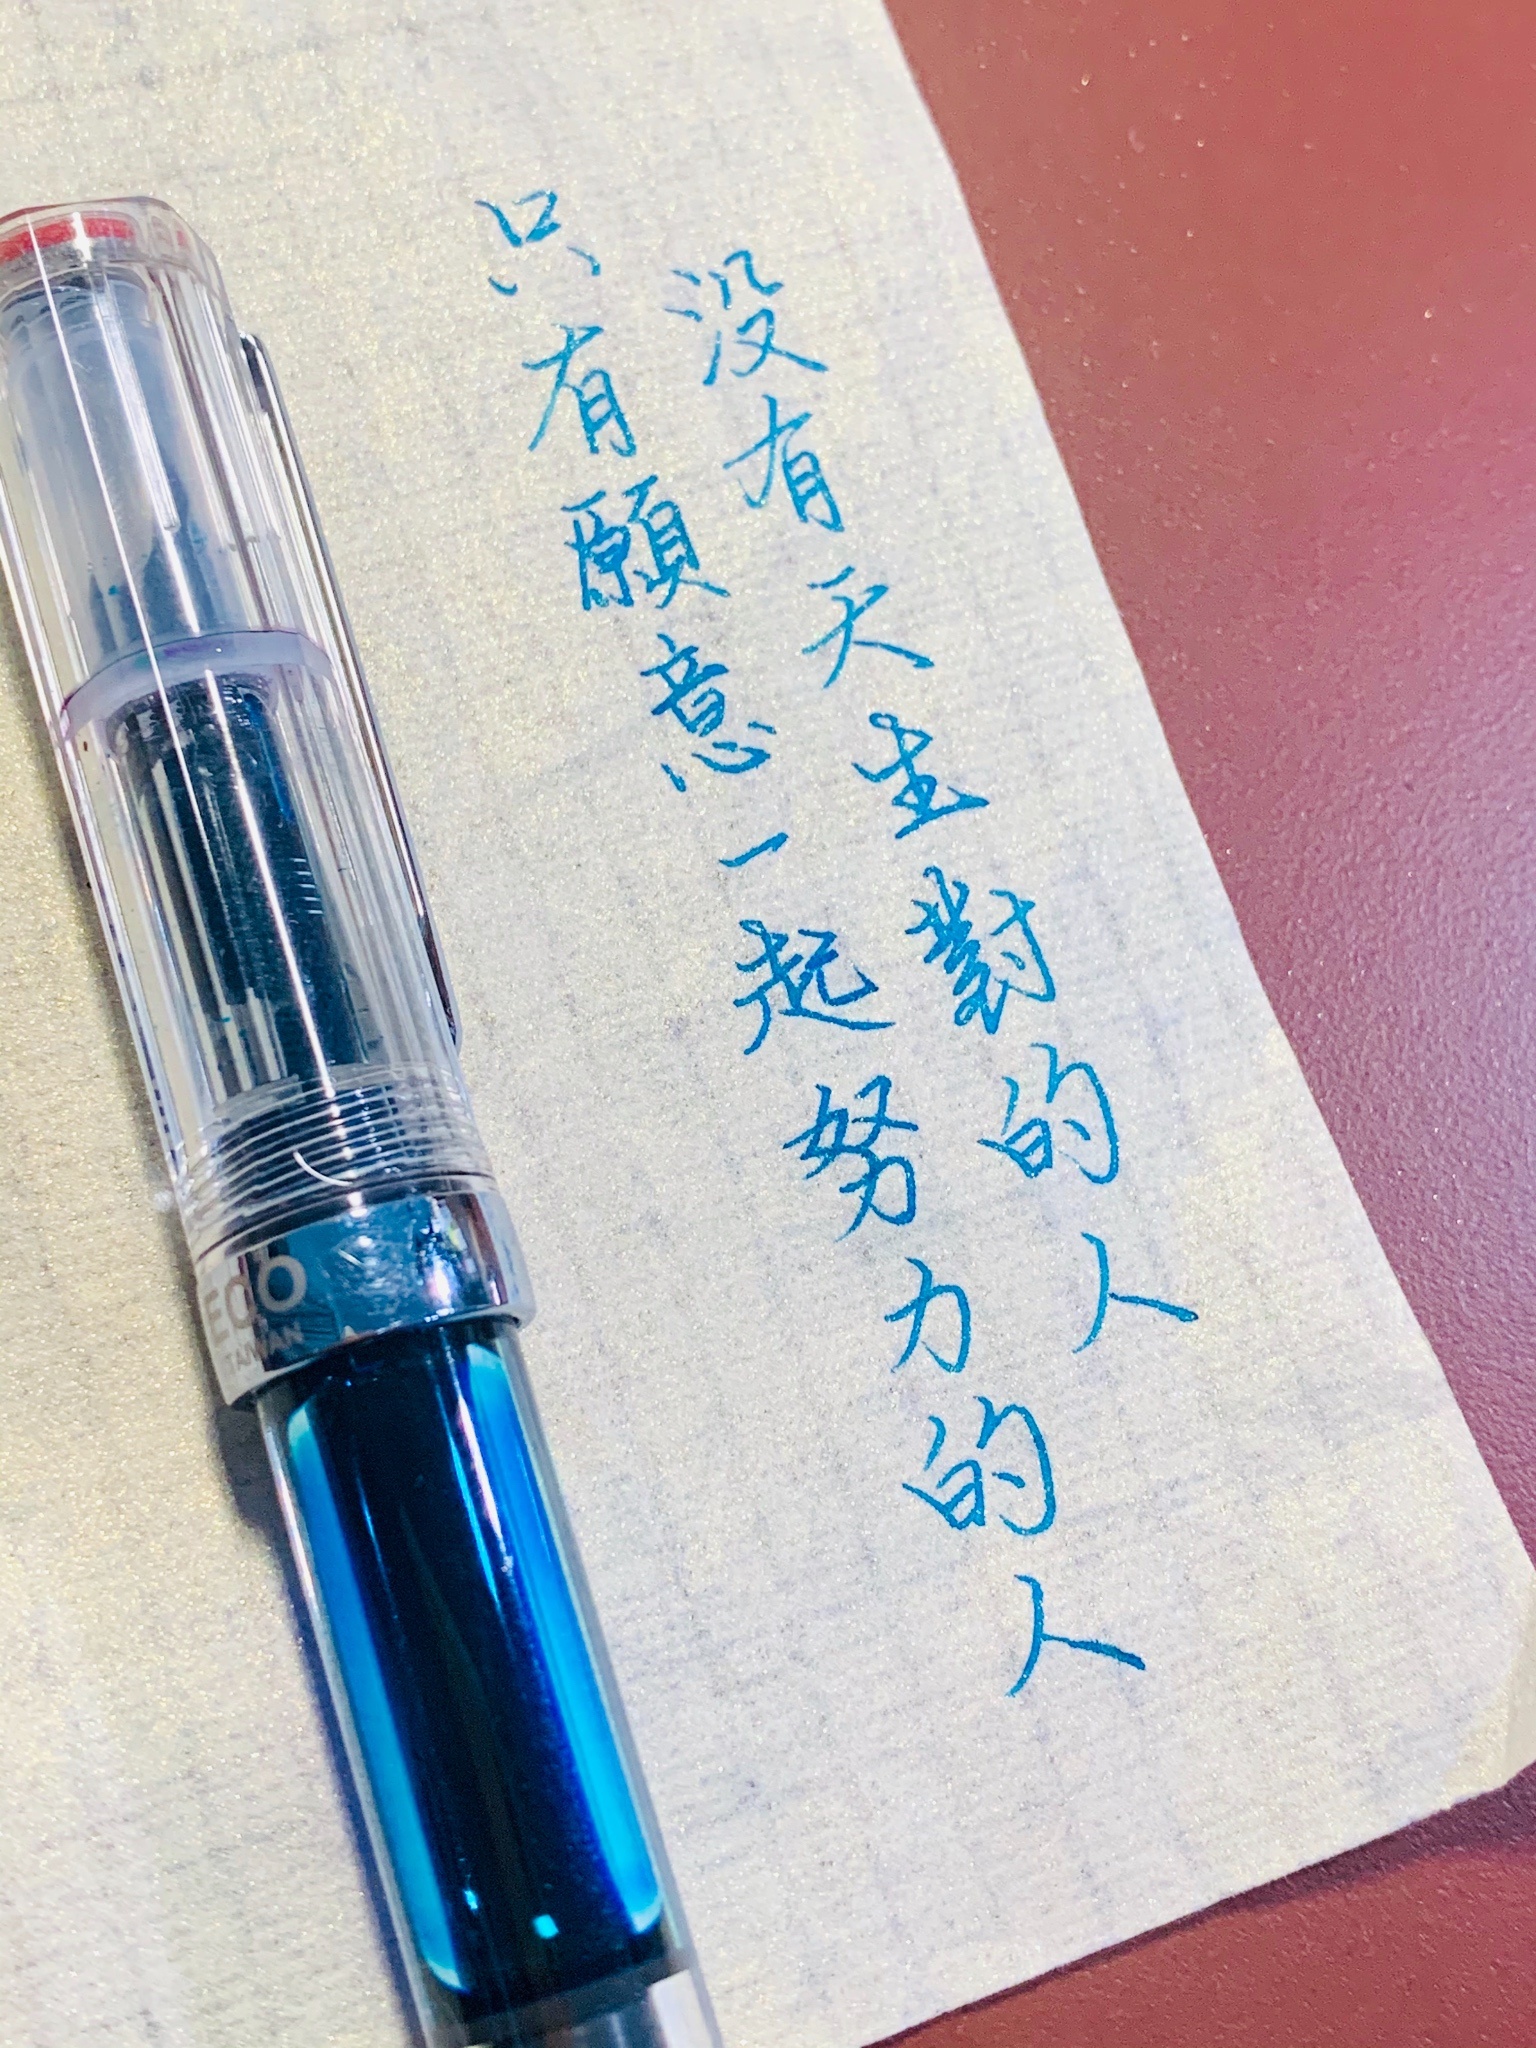 沒有天生對的人
只有願意一起努力的人
ECO
TAIWAN